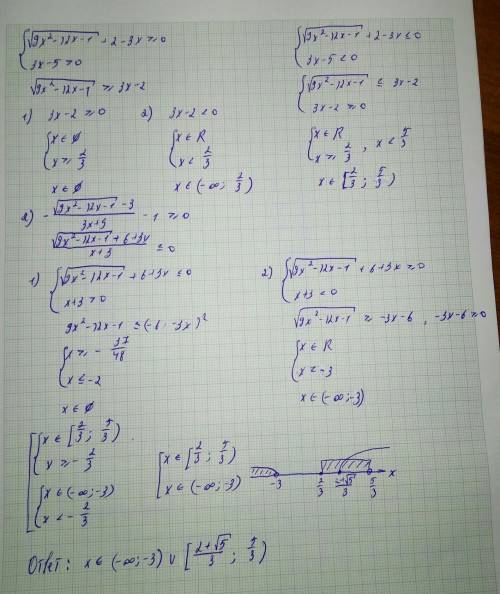 {√(9x²-12x-1) + 2-3x ≥ 0
{3x-5 > 0
√(9x²-12x-1) ≥ 3x-2
1) 3x-2 ≥ 0 2) 3x-2 < 0
{x ∈ ∅
{x ≥ 2/3
x ∈ ∅
{x ∈ R
{x < 2/3
x ∈ (-∞; 2/3)
{√(9x²-12x-1) + 2-3x ≤ 0
{3x-5 < 0
{√(9x²-12x-1) ≤ 3x-2
{3x-2 ≥ 0
{x ∈ R
{x ≥ 2/3 , x < 5/3
x ∈ [2/3; 5/3)
2) - (√(9x²-12x-1) -3)/(3x+9) - 1 ≥ 0
(√(9x²-12x-1) + 6+3x)/(x+3) ≤ 0
1) {√(9x²-12x-1) + 6+3x ≤ 0
{x+3 > 0
9x²-12x-1 ≤ (-6-3x)²
{x ≥ - 37/48
{x ≤ -2
x ∈ ∅
2) {√(9x²-12x-1) + 6+3x ≥ 0
{x+3 < 0
√(9x²-12x-1) ≥ -3x-6 , -3x-6 ≥ 0
{x ∈ R
{x < -3
x ∈ (-∞; -3)
[{x ∈ [2/3; 5/3)
{x ≥ - 2/3
{x ∈ (-∞; -3)
{x < - 2/3
[x ∈ [2/3; 5/3)
x ∈ (-∞; -3)
-3 2/3 (2+√5)/3 5/3 x
Ответ: x ∈ (-∞; -3) ∪ [(2+√5)/3 ; 5/3)